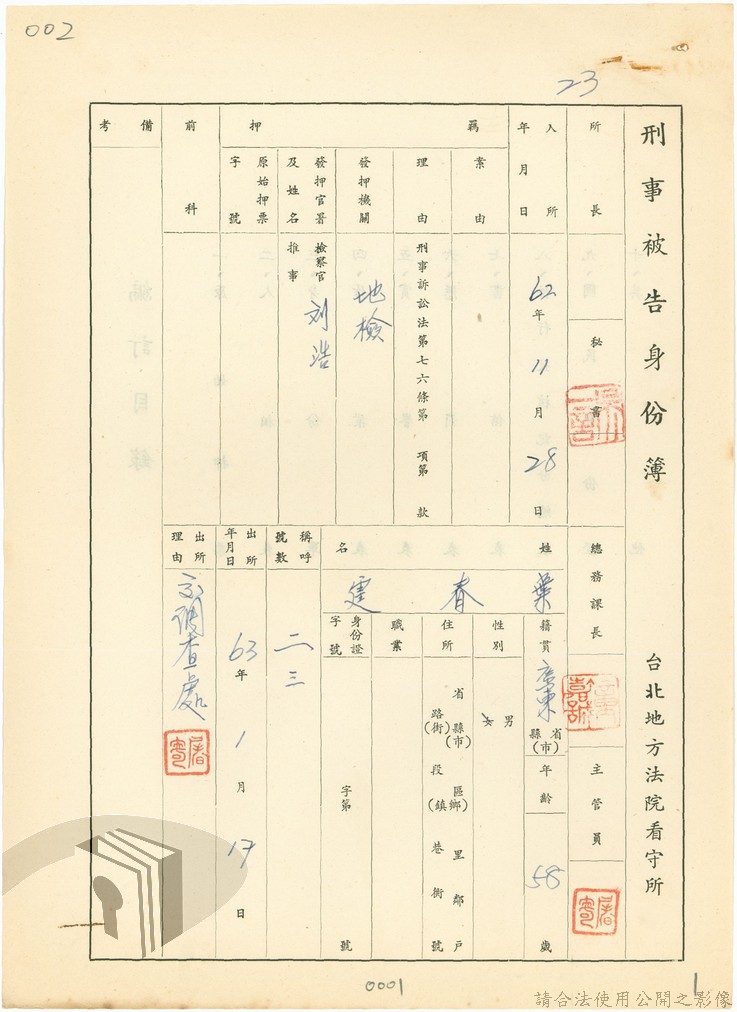 002
23
刑事被告身份簿
台北地方法院看守所
所長
秘書
總務課長
主管員
人所年月日
62年11月28日
羈押
案由
理由
刑事訴訟法第七六條第 項第 款
發押機關
地檢
發押官署及姓名
檢察官 刘浩
推事
原始押票字號
前科
備考
姓名
葉春建
籍貫
廣東
省縣(市)
年齡
58歲
性別
男
女
住所
省縣(市)區(鄉)里鄰戶
路(街)段(鎮)巷衖號
職業
身份證字號
字第 號
稱呼號數
二三
出所年月日
63年1月17日
出所理由
調查處
編訂目錄
0001
1
請合法使用公開之影像